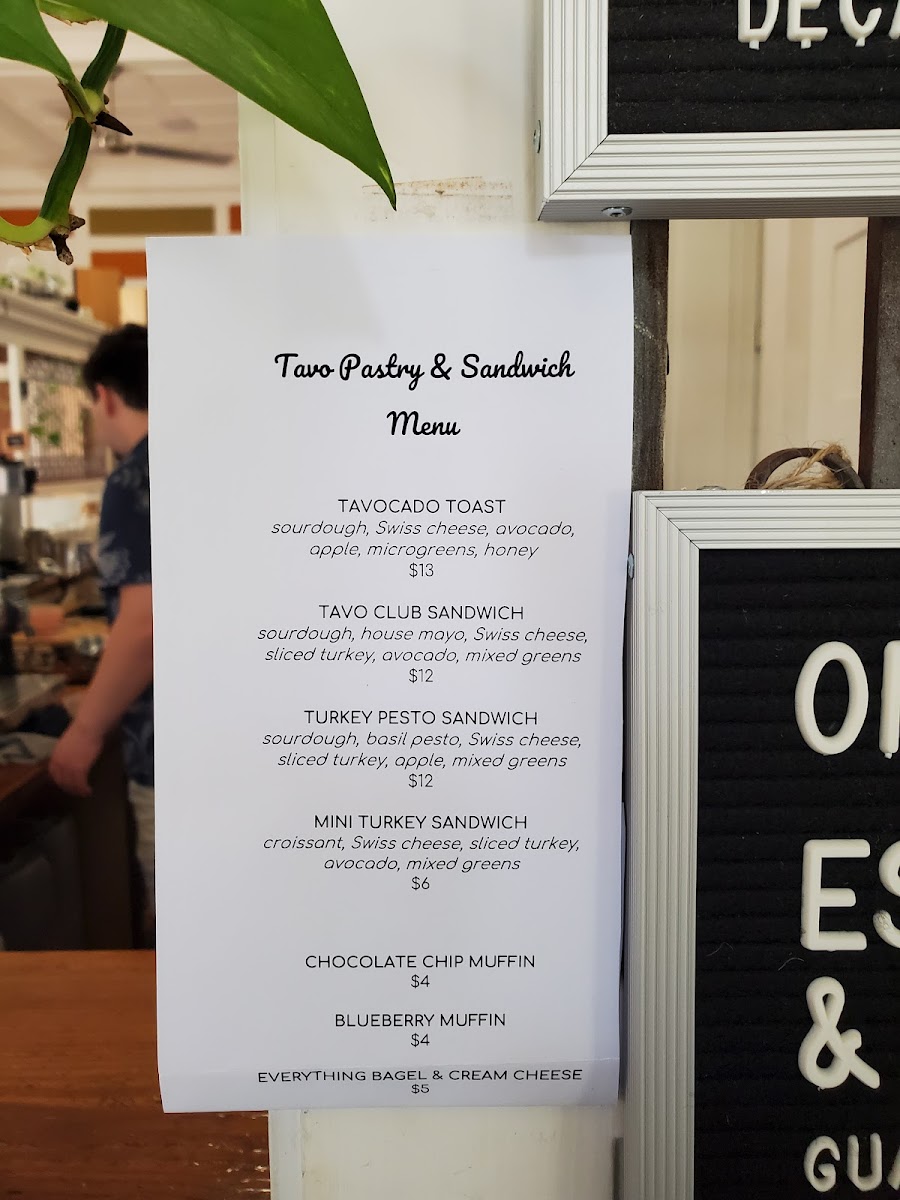 Tavo Pastry & Sandwich
Menu
TAVOCADO TOAST
sourdough, Swiss cheese, avocado,
apple, microgreens, honey
$13
TAVO CLUB SANDWICH
sourdough, house mayo, Swiss cheese,
sliced turkey, avocado, mixed greens
$12
TURKEY PESTO SANDWICH
sourdough, basil pesto, Swiss cheese,
sliced turkey, apple, mixed greens
$12
MINI TURKEY SANDWICH
croissant, Swiss cheese, sliced turkey,
avocado, mixed greens
$6
CHOCOLATE CHIP MUFFIN
$4
BLUEBERRY MUFFIN
$4
EVERYTHING BAGEL & CREAM CHEESE
$5
&